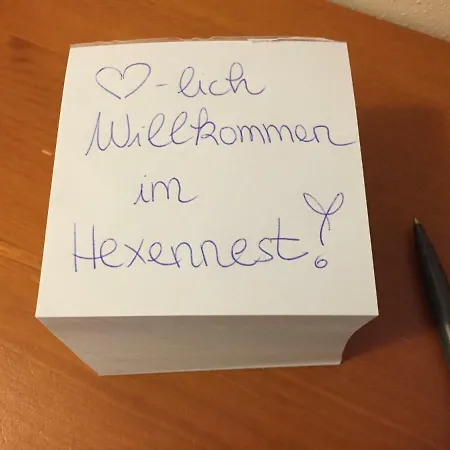 ♡-lich
Willkommen
im
Hexennest!